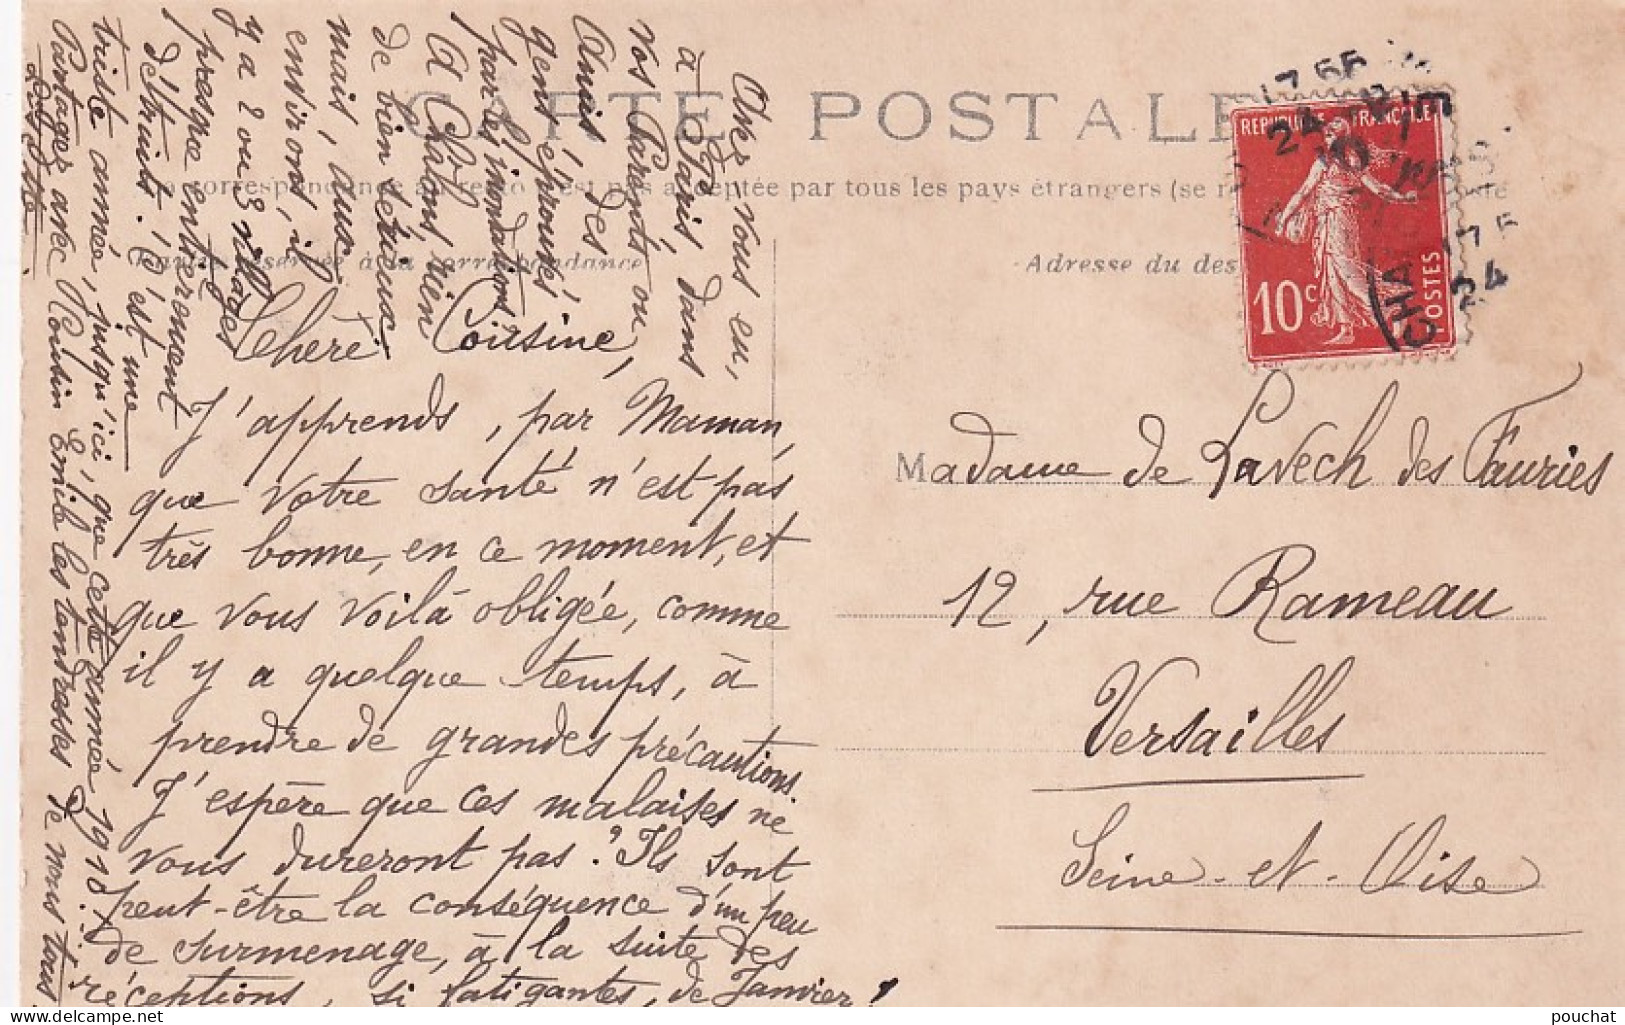 CARTE POSTALE
La correspondance au recto n'est pas acceptée par tous les pays étrangers (se re
Partie réservée à la correspondance
Adresse du des
REPUBLIQUE FRANÇAISE
10c
POSTES
Madame de Lavech des Fauries
12, rue Rameau
Versailles
Seine-et-Oise
Chère Cousine,
J'apprends, par Maman,
que votre santé n'est pas
très bonne, en ce moment, et
que vous voilà obligée, comme
il y a quelque temps, à
prendre de grandes précautions.
J'espère que ces malaises ne
vous dureront pas. Ils sont
peut-être la conséquence d'un peu
de surmenage, à la suite des
réceptions, si fatigantes, de Janvier!
Avez-vous eu,
à Paris, dans
vos Parents ou
Amis, des
gens éprouvés
par les inondations?
A Chalons, rien
de bien sérieux
mais, aux
environs, il
y a 2 ou 3 villages
presque entièrement
détruits! C'est une
triste année, jusqu'ici, que cette année 1910!
Partager avec Cousin Emile les tendresses de nous tous.